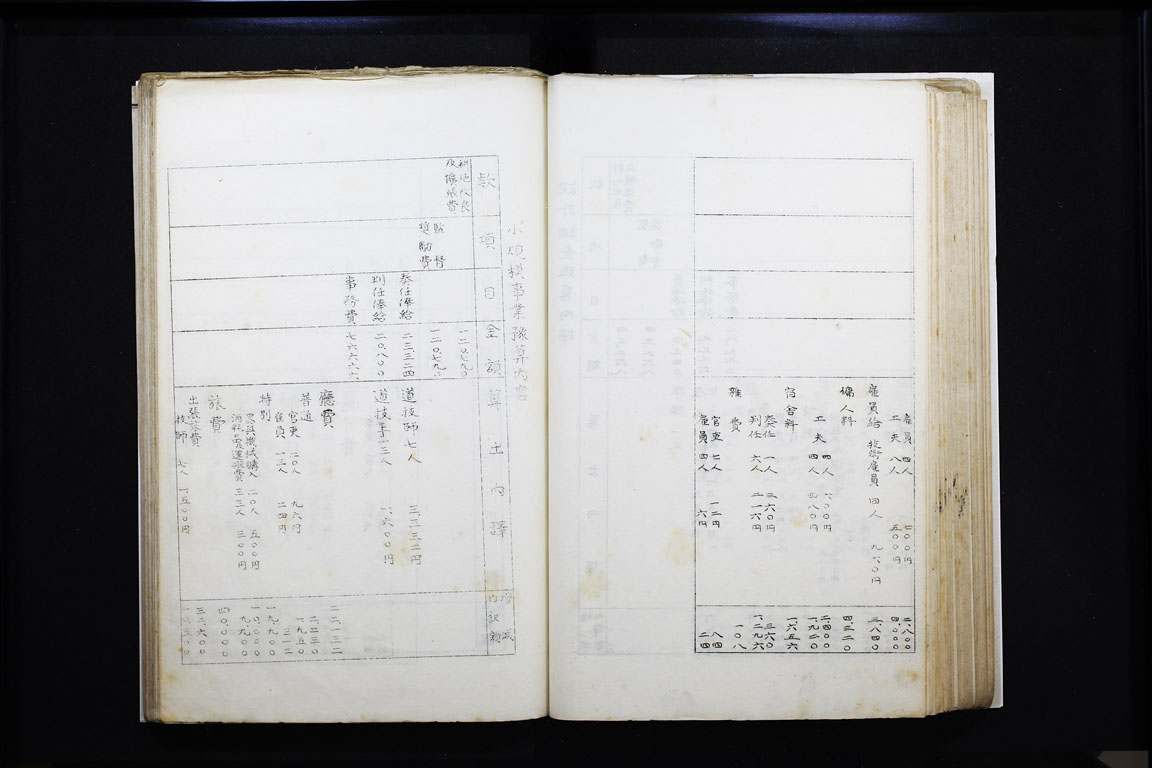 雇員 四人 七〇〇円 二、八〇〇
工夫 八人 五〇〇円 四、〇〇〇
雇員給 技術雇員 四人 九六〇円 三、八四〇
傭人料 四、三二〇
四人 六〇〇円 二、四〇〇
工夫 四人 四八〇円 一、九二〇
宿舍料 一、六五六
奏任 一人 三六〇円 三六〇
判任 六人 二一六円 一、二九六
雜費 一〇八
官吏 七人 一二円 八四
雇員 四人 六円 二四
小規模事業豫算内容
款 項 目 金額 算出内譯 増減内訳額
耕地改良及擴張費 一二〇、七九〇
監督奬勵費 一二〇、七九〇
奏任俸給 二三、三二四 道技師七人 三、三三二円
判任俸給 二〇、八〇〇 道技手一三人 一、六〇〇円
事務費 七六、六六六
廳費 二二、一三二
普通 二、二三二
官吏 二〇人 九六円 一、九二〇
雇員 一三人 二四円 三一二
特別 一九、九〇〇
器具機械購入 二〇人 五〇〇円 一〇、〇〇〇
消耗品及運搬費 三三人 三〇〇円 九、九〇〇
旅費
出張旅費
技師 七人 一、五〇〇円 一〇、五〇〇